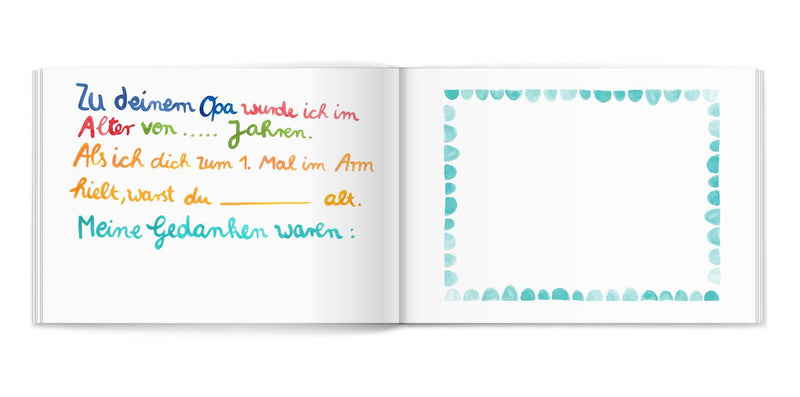 Zu deinem Opa wurde ich im
Alter von ..... Jahren.
Als ich dich zum 1. Mal im Arm
hielt, warst du __________ alt.
Meine Gedanken waren :